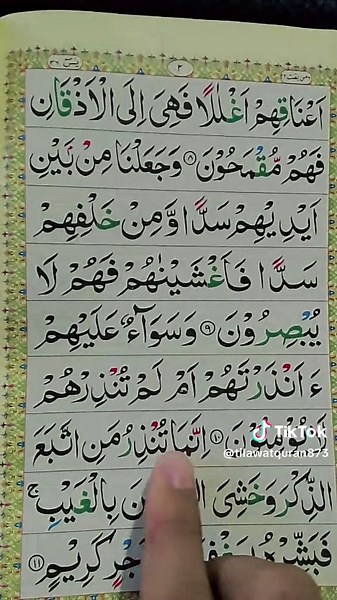 يٰسٓ ٣٦
٣
اَعْنَاقِهِمْ اَغْلٰلًا فَهِىَ اِلَى الْاَذْقَانِ
فَهُمْ مُّقْمَحُوْنَ ٨ وَجَعَلْنَا مِنْۢ بَيْنِ
اَيْدِيْهِمْ سَدًّا وَّمِنْ خَلْفِهِمْ
سَدًّا فَاَغْشَيْنٰهُمْ فَهُمْ لَا
يُبْصِرُوْنَ ٩ وَسَوَآءٌ عَلَيْهِمْ
ءَاَنْذَرْتَهُمْ اَمْ لَمْ تُنْذِرْهُمْ
١٠ اِنَّمَا تُنْذِرُ مَنِ اتَّبَعَ
TikTok
@tilawatquran873
الذِّكْرَ وَخَشِىَ بِالْغَيْبِ ج
فَبَشِّرْهُ كَرِيْمٍ ١١